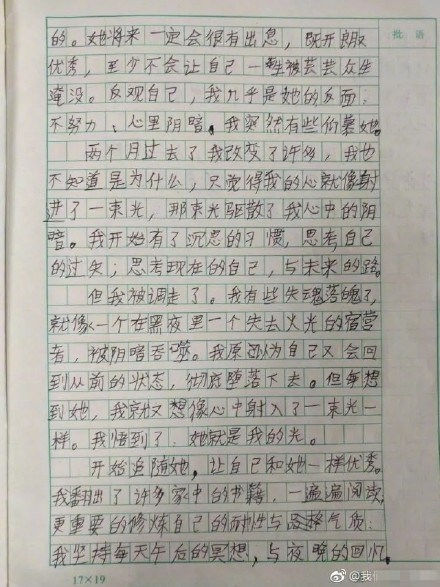 批 语
的。她将来一定会很有出息，既开朗又
优秀，至少不会让自己一生被芸芸众生
淹没。反观自己，我几乎是她的反面：
不努力、心里阴暗。我突然有些仰慕她。
两个月过去了我改变了许多，我也
不知道是为什么，只觉得我的心就像射
进了一束光，那束光驱散了我心中的阴
暗。我开始有了沉思的习惯，思考自己
的过失；思考现在的自己，与未来的路。
但我被调走了。我有些失魂落魄了，
就像一个在黑夜里一个失去火光的宿营
者，被阴暗吞噬。我原以为自己又会回
到从前的状态，彻底堕落下去。但每想
到她，我就又想像心中射入了一束光一
样。我悟到了：她就是我的光。
开始追随她，让自己和她一样优秀。
我翻出了许多家中的书籍，一遍遍阅读，
更重要的修炼自己的耐性与品格气质：
我坚持每天午后的冥想，与夜晚的回忆，
17×19
@我们